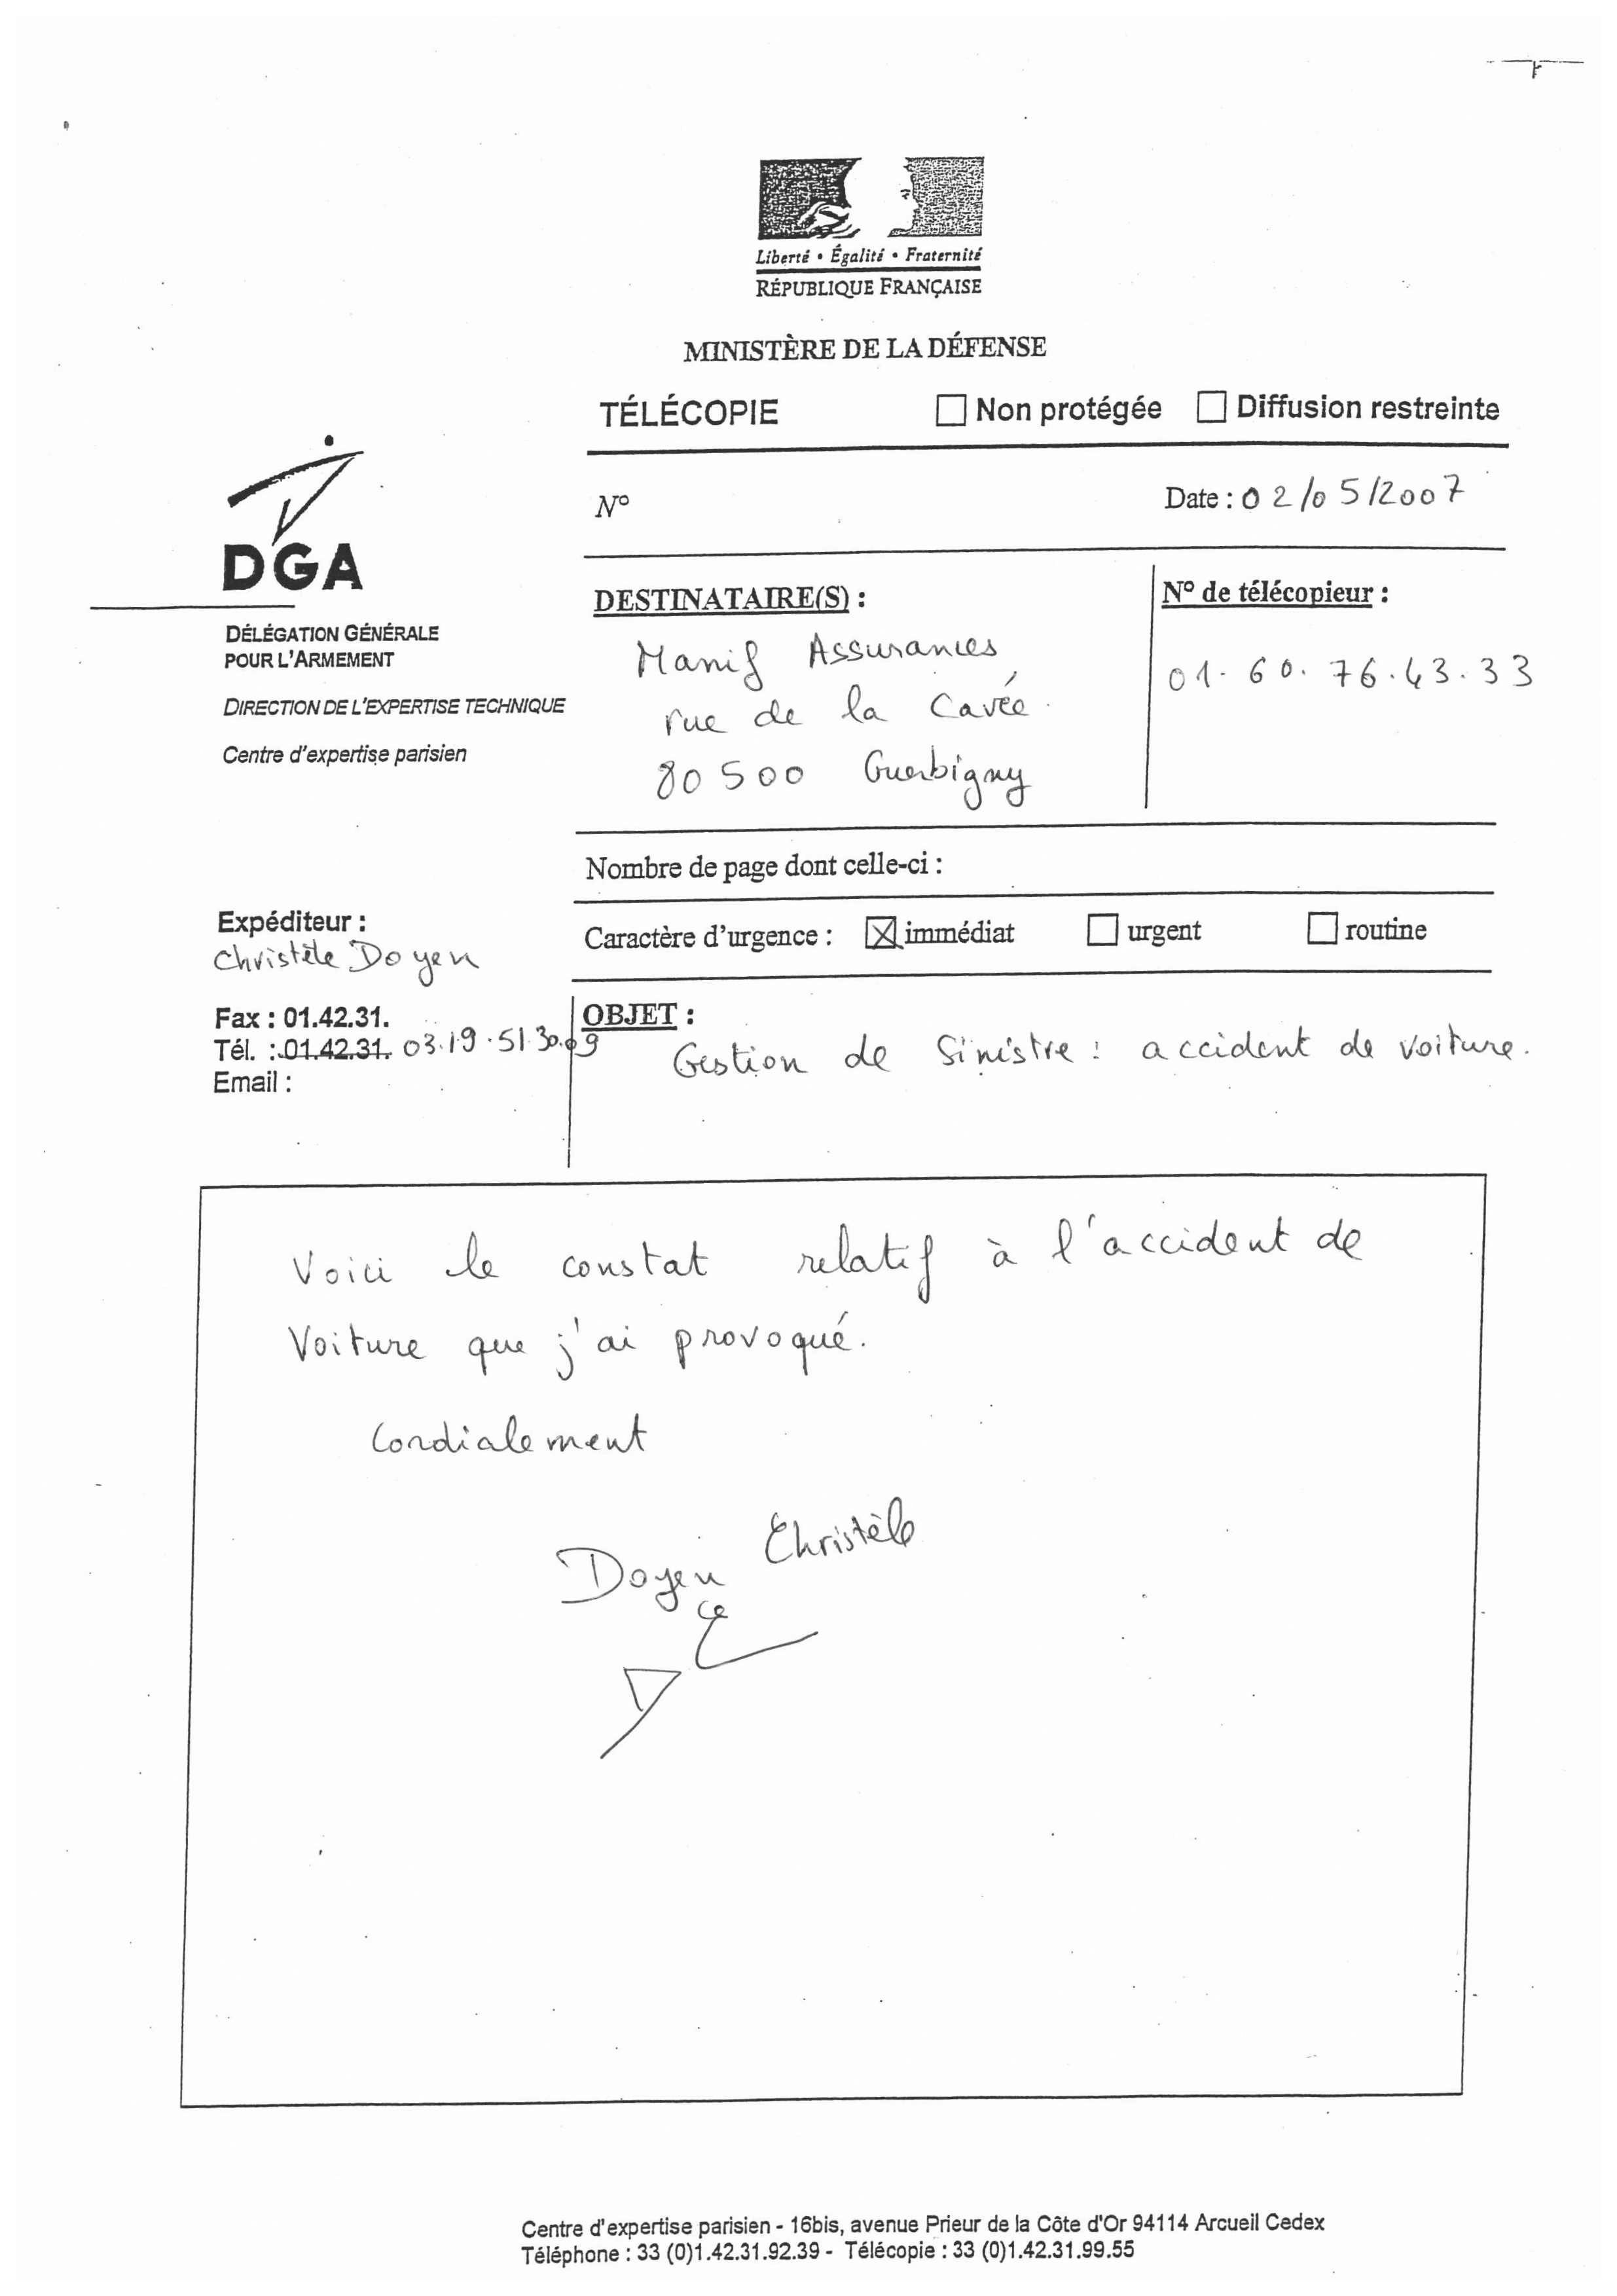 Liberté • Égalité • Fraternité
RÉPUBLIQUE FRANÇAISE
MINISTÈRE DE LA DÉFENSE
TÉLÉCOPIE ☐ Non protégée ☐ Diffusion restreinte
DGA
N° Date : 02/05/2007
DÉLÉGATION GÉNÉRALE
POUR L'ARMEMENT
DIRECTION DE L'EXPERTISE TECHNIQUE
Centre d'expertise parisien
DESTINATAIRE(S) :
Manif Assurances
rue de la Cavée
80500 Guerbigny
N° de télécopieur :
01.60.76.43.33
Nombre de page dont celle-ci :
Caractère d'urgence : ☒ immédiat ☐ urgent ☐ routine
Expéditeur :
Christèle Doyen
Fax : 01.42.31.
Tél. : 01.42.31. 03.19.51.30.09
Email :
OBJET :
Gestion de Sinistre : accident de voiture.
Voici le constat relatif à l'accident de
Voiture que j'ai provoqué.
Cordialement
Doyen Christèle
Centre d'expertise parisien - 16bis, avenue Prieur de la Côte d'Or 94114 Arcueil Cedex
Téléphone : 33 (0)1.42.31.92.39 - Télécopie : 33 (0)1.42.31.99.55